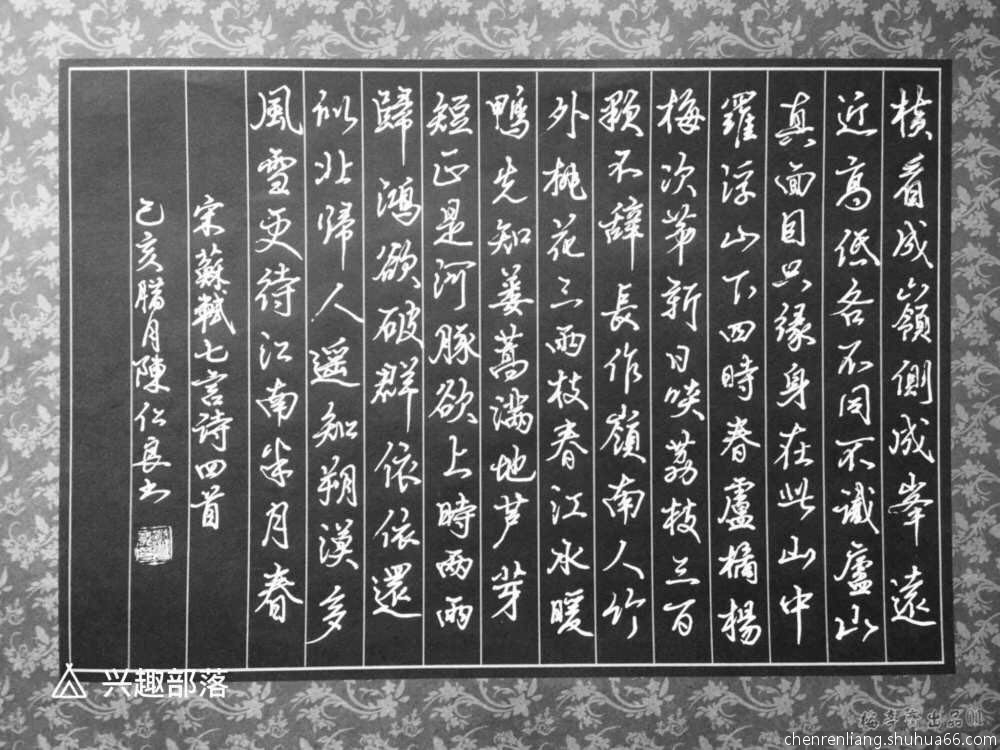 橫看成山嶺側成峯遠
近高低各不同不識廬山
真面目只緣身在此山中
羅浮山下四時春盧橘楊
梅次第新日啖荔枝三百
顆不辭長作嶺南人竹
外桃花三兩枝春江水暖
鴨先知蔞蒿滿地芦芽
短正是河豚欲上時兩兩
歸鴻欲破群依依還
似北歸人遥知朔漠多
風雪更待江南半月春
宋蘇軾七言詩四首
己亥腊月陳仁良书
兴趣部落
chenrenliang.shuhua66.com